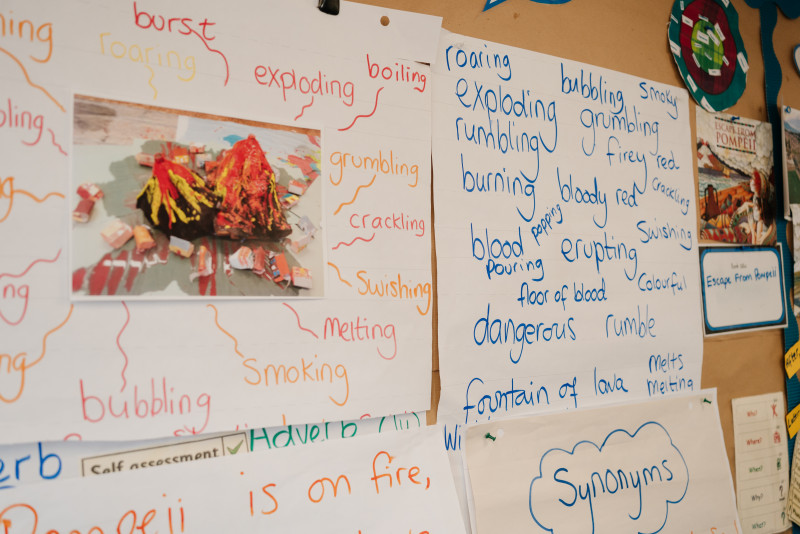 burst
roaring
exploding
boiling
grumbling
crackling
Swishing
Melting
Smoking
bubbling
roaring bubbling smoky
exploding grumbling
rumbling firey red
burning bloody red crackling
popping
blood erupting Swishing
pouring
floor of blood Colourful
dangerous rumble
fountain of lava melts
melting
ESCAPE FROM
POMPEII
Escape From Pompeii
Self assessment
Adverb
is on fire,
Synonyms
Who?
Where?
When?
Why?